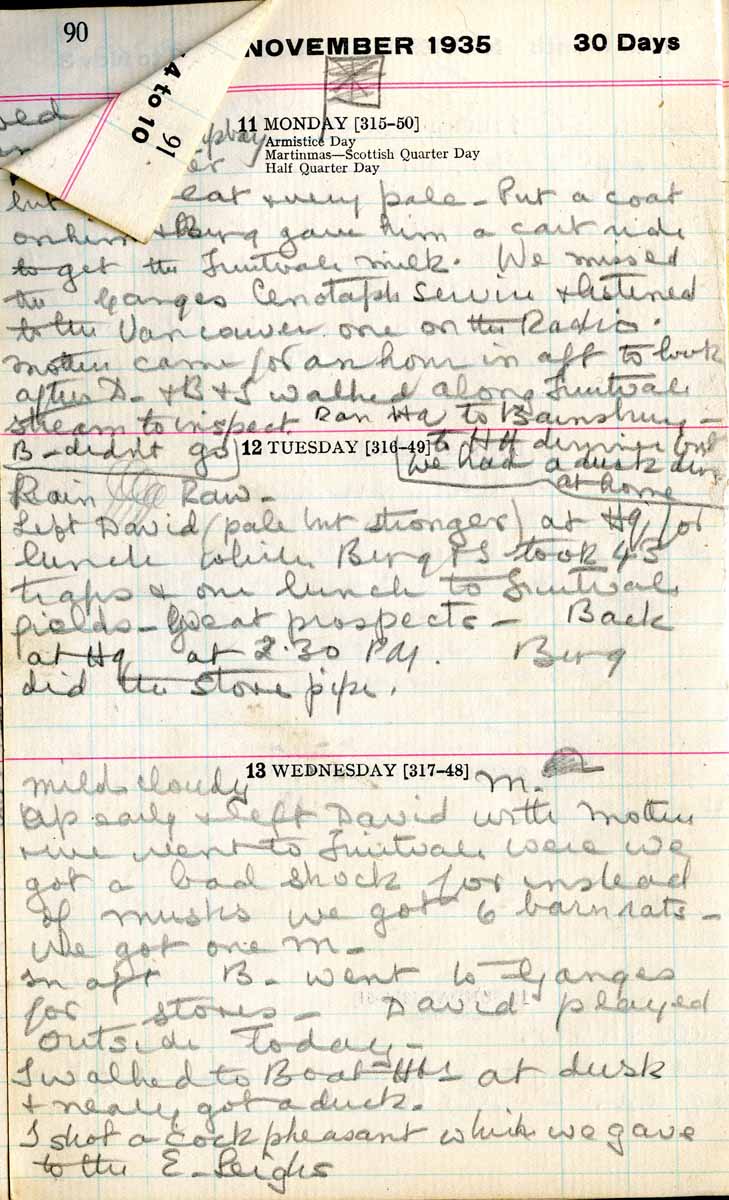 90
NOVEMBER 1935 30 Days
4 to 10
91
11 MONDAY [315–50]
Armistice Day
Martinmas—Scottish Quarter Day
Half Quarter Day
play
but eat & very pale – Put a coat
on him & Berg gave him a cart ride
to get the Fruitvale milk. We missed
the Ganges Cenotaph Service & listened
to the Vancouver one on the Radio.
Mother came for an hour in aft to look
after D. & B & I walked along Fruitvale
stream to inspect Ran Hq to Bainsbury –
B – didn't go to HH dinner but
we had a duck din
at home
12 TUESDAY [316–49]
Rain Raw –
Left David (pale but stronger) at Hq for
lunch while Berg & I took 43
traps & one lunch to Fruitvale
fields – Great prospects – Back
at Hq at 2.30 P.M. Berg
did the stove pipe.
13 WEDNESDAY [317–48]
mild cloudy M.
Up early & left David with Mother
went to Fruitvale were we
got a bad shock for instead
of musks we got 6 barn rats –
We got one M –
In aft B. went to Ganges
for stores – David played
outside today –
I walked to Boat Hs at dusk
& nearly got a duck.
I shot a cock pheasant which we gave
to the E. Leighs